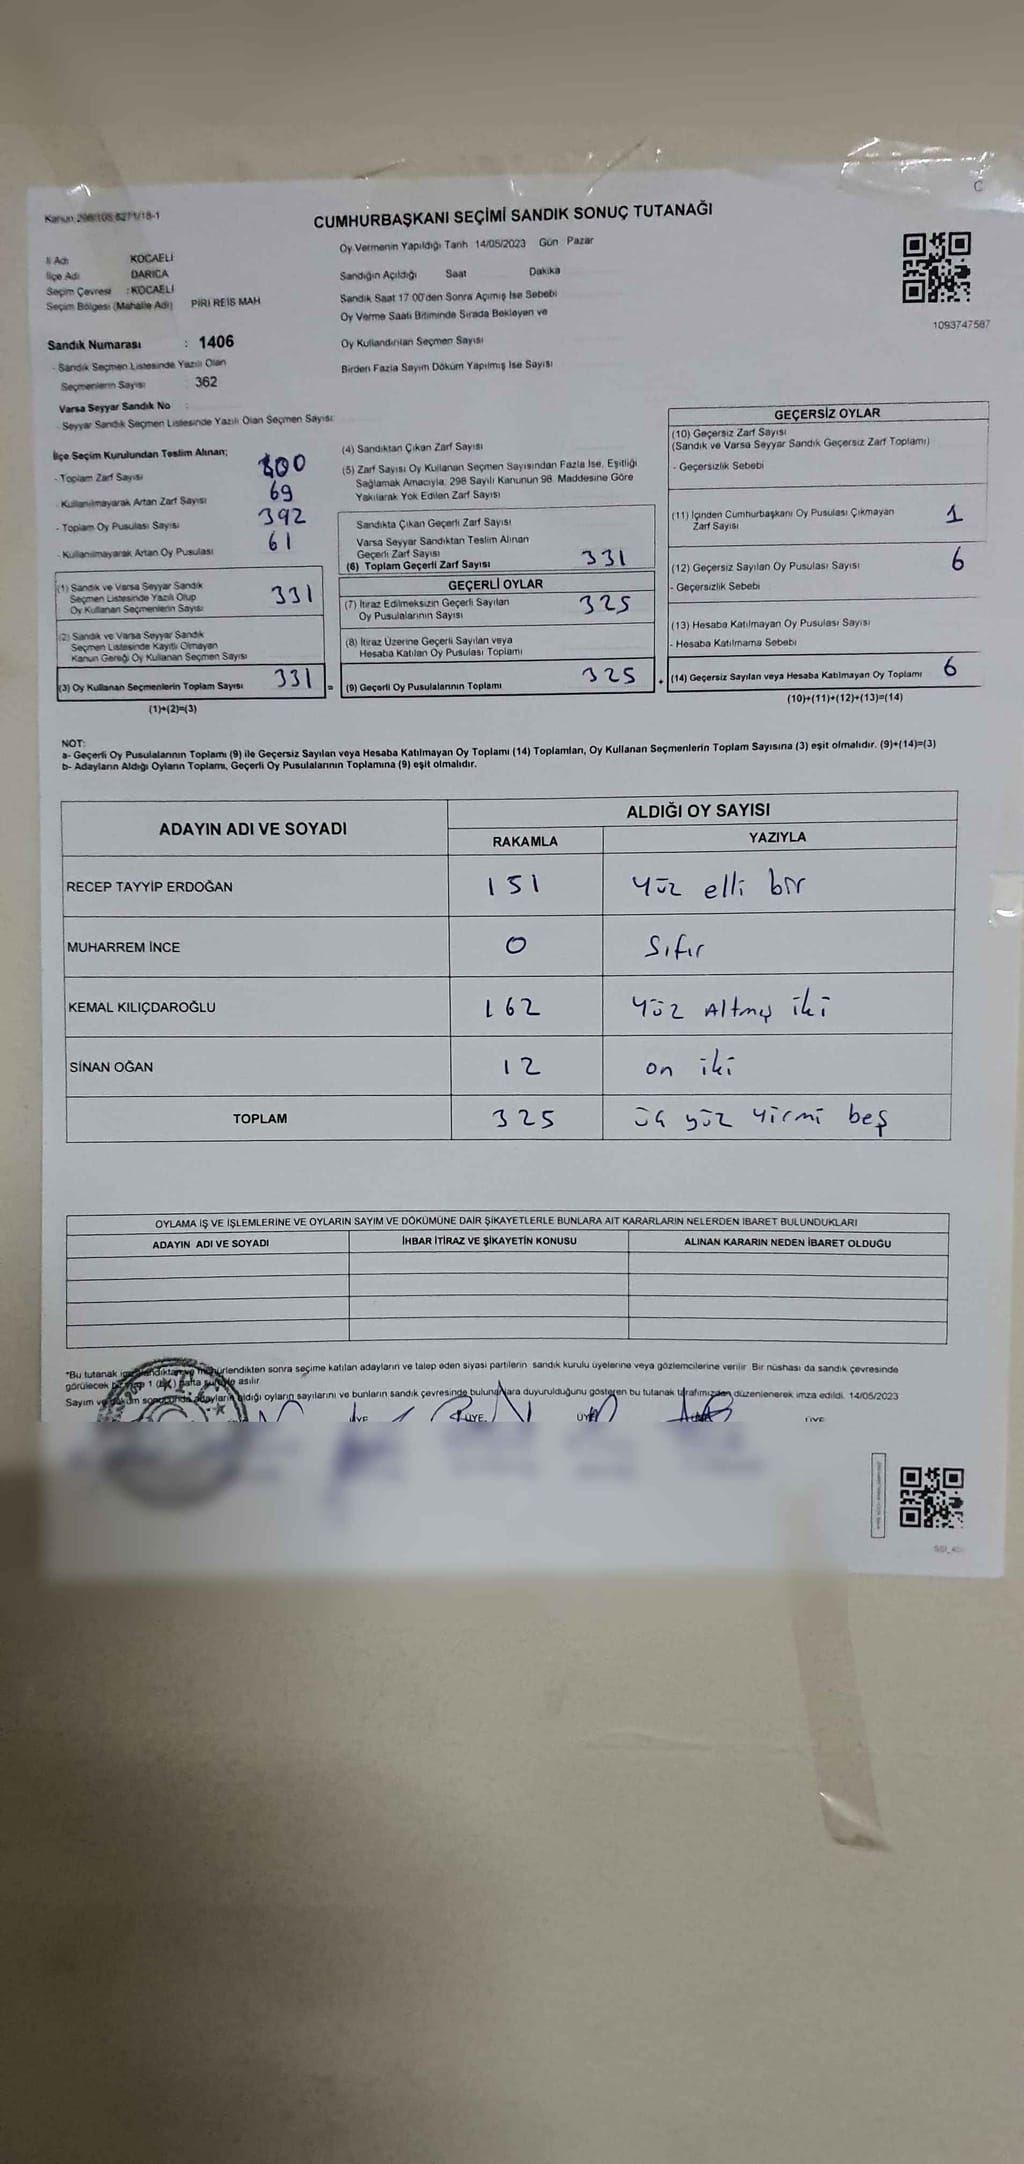 C
Kanun 298/105 6271/18-1
CUMHURBAŞKANI SEÇİMİ SANDIK SONUÇ TUTANAĞI
İl Adı KOCAELİ
İlçe Adı DARICA
Seçim Çevresi : KOCAELİ
Seçim Bölgesi (Mahalle Adı) PİRİ REİS MAH
Sandık Numarası : 1406
- Sandık Seçmen Listesinde Yazılı Olan
Seçmenlerin Sayısı 362
Varsa Seyyar Sandık No
- Seyyar Sandık Seçmen Listesinde Yazılı Olan Seçmen Sayısı:
Oy Vermenin Yapıldığı Tarih 14/05/2023 Gün Pazar
Sandığın Açıldığı Saat Dakika
Sandık Saat 17 00'den Sonra Açımış İse Sebebi
Oy Verme Saati Bitiminde Sırada Bekleyen ve
Oy Kullandırılan Seçmen Sayısı
Birden Fazla Sayım Döküm Yapılmış İse Sayısı
1093747587
İlçe Seçim Kurulundan Teslim Alınan;
- Toplam Zarf Sayısı 400
- Kullanılmayarak Artan Zarf Sayısı 69
- Toplam Oy Pusulası Sayısı 392
- Kullanılmayarak Artan Oy Pusulası 61
(1) Sandık ve Varsa Seyyar Sandık
Seçmen Listesinde Yazılı Olup
Oy Kullanan Seçmenlerin Sayısı 331
(2) Sandık ve Varsa Seyyar Sandık
Seçmen Listesinde Kayıtlı Olmayan
Kanun Gereği Oy Kullanan Seçmen Sayısı
(3) Oy Kullanan Seçmenlerin Toplam Sayısı 331 =
(1)+(2)=(3)
(4) Sandıktan Çıkan Zarf Sayısı
(5) Zarf Sayısı Oy Kullanan Seçmen Sayısından Fazla İse, Eşitliği
Sağlamak Amacıyla, 298 Sayılı Kanunun 98. Maddesine Göre
Yakılarak Yok Edilen Zarf Sayısı
Sandıkta Çıkan Geçerli Zarf Sayısı
Varsa Seyyar Sandıktan Teslim Alınan
Geçerli Zarf Sayısı
(6) Toplam Geçerli Zarf Sayısı 331
GEÇERLİ OYLAR
(7) İtiraz Edilmeksizin Geçerli Sayılan
Oy Pusulalarının Sayısı 325
(8) İtiraz Üzerine Geçerli Sayılan veya
Hesaba Katılan Oy Pusulası Toplamı
(9) Geçerli Oy Pusulalarının Toplamı 325 +
GEÇERSİZ OYLAR
(10) Geçersiz Zarf Sayısı
(Sandık ve Varsa Seyyar Sandık Geçersiz Zarf Toplamı)
- Geçersizlik Sebebi
(11) İçinden Cumhurbaşkanı Oy Pusulası Çıkmayan
Zarf Sayısı 1
(12) Geçersiz Sayılan Oy Pusulası Sayısı 6
- Geçersizlik Sebebi
(13) Hesaba Katılmayan Oy Pusulası Sayısı
- Hesaba Katılmama Sebebi
(14) Geçersiz Sayılan veya Hesaba Katılmayan Oy Toplamı 6
(10)+(11)+(12)+(13)=(14)
NOT:
a- Geçerli Oy Pusulalarının Toplamı (9) ile Geçersiz Sayılan veya Hesaba Katılmayan Oy Toplamı (14) Toplamları, Oy Kullanan Seçmenlerin Toplam Sayısına (3) eşit olmalıdır. (9)+(14)=(3)
b- Adayların Aldığı Oyların Toplamı, Geçerli Oy Pusulalarının Toplamına (9) eşit olmalıdır.
ADAYIN ADI VE SOYADI ALDIĞI OY SAYISI
RAKAMLA YAZIYLA
RECEP TAYYİP ERDOĞAN 151 Yüz elli bir
MUHARREM İNCE 0 Sıfır
KEMAL KILIÇDAROĞLU 162 Yüz Altmış iki
SİNAN OĞAN 12 on iki
TOPLAM 325 üç yüz Yirmi beş
OYLAMA İŞ VE İŞLEMLERİNE VE OYLARIN SAYIM VE DÖKÜMÜNE DAİR ŞİKAYETLERLE BUNLARA AİT KARARLARIN NELERDEN İBARET BULUNDUKLARI
ADAYIN ADI VE SOYADI İHBAR İTİRAZ VE ŞİKAYETİN KONUSU ALINAN KARARIN NEDEN İBARET OLDUĞU
*Bu tutanak mühürlendikten sonra seçime katılan adayların ve talep eden siyasi partilerin sandık kurulu üyelerine veya gözlemcilerine verilir. Bir nüshası da sandık çevresinde
görülecek bir 1 (bir) hafta süreyle asılır.
Sayım ve döküm sonucunda adayların aldığı oyların sayılarını ve bunların sandık çevresinde bulunanlara duyurulduğunu gösteren bu tutanak tarafımızdan düzenlenerek imza edildi. 14/05/2023
ÜYE ÜYE ÜYE ÜYE